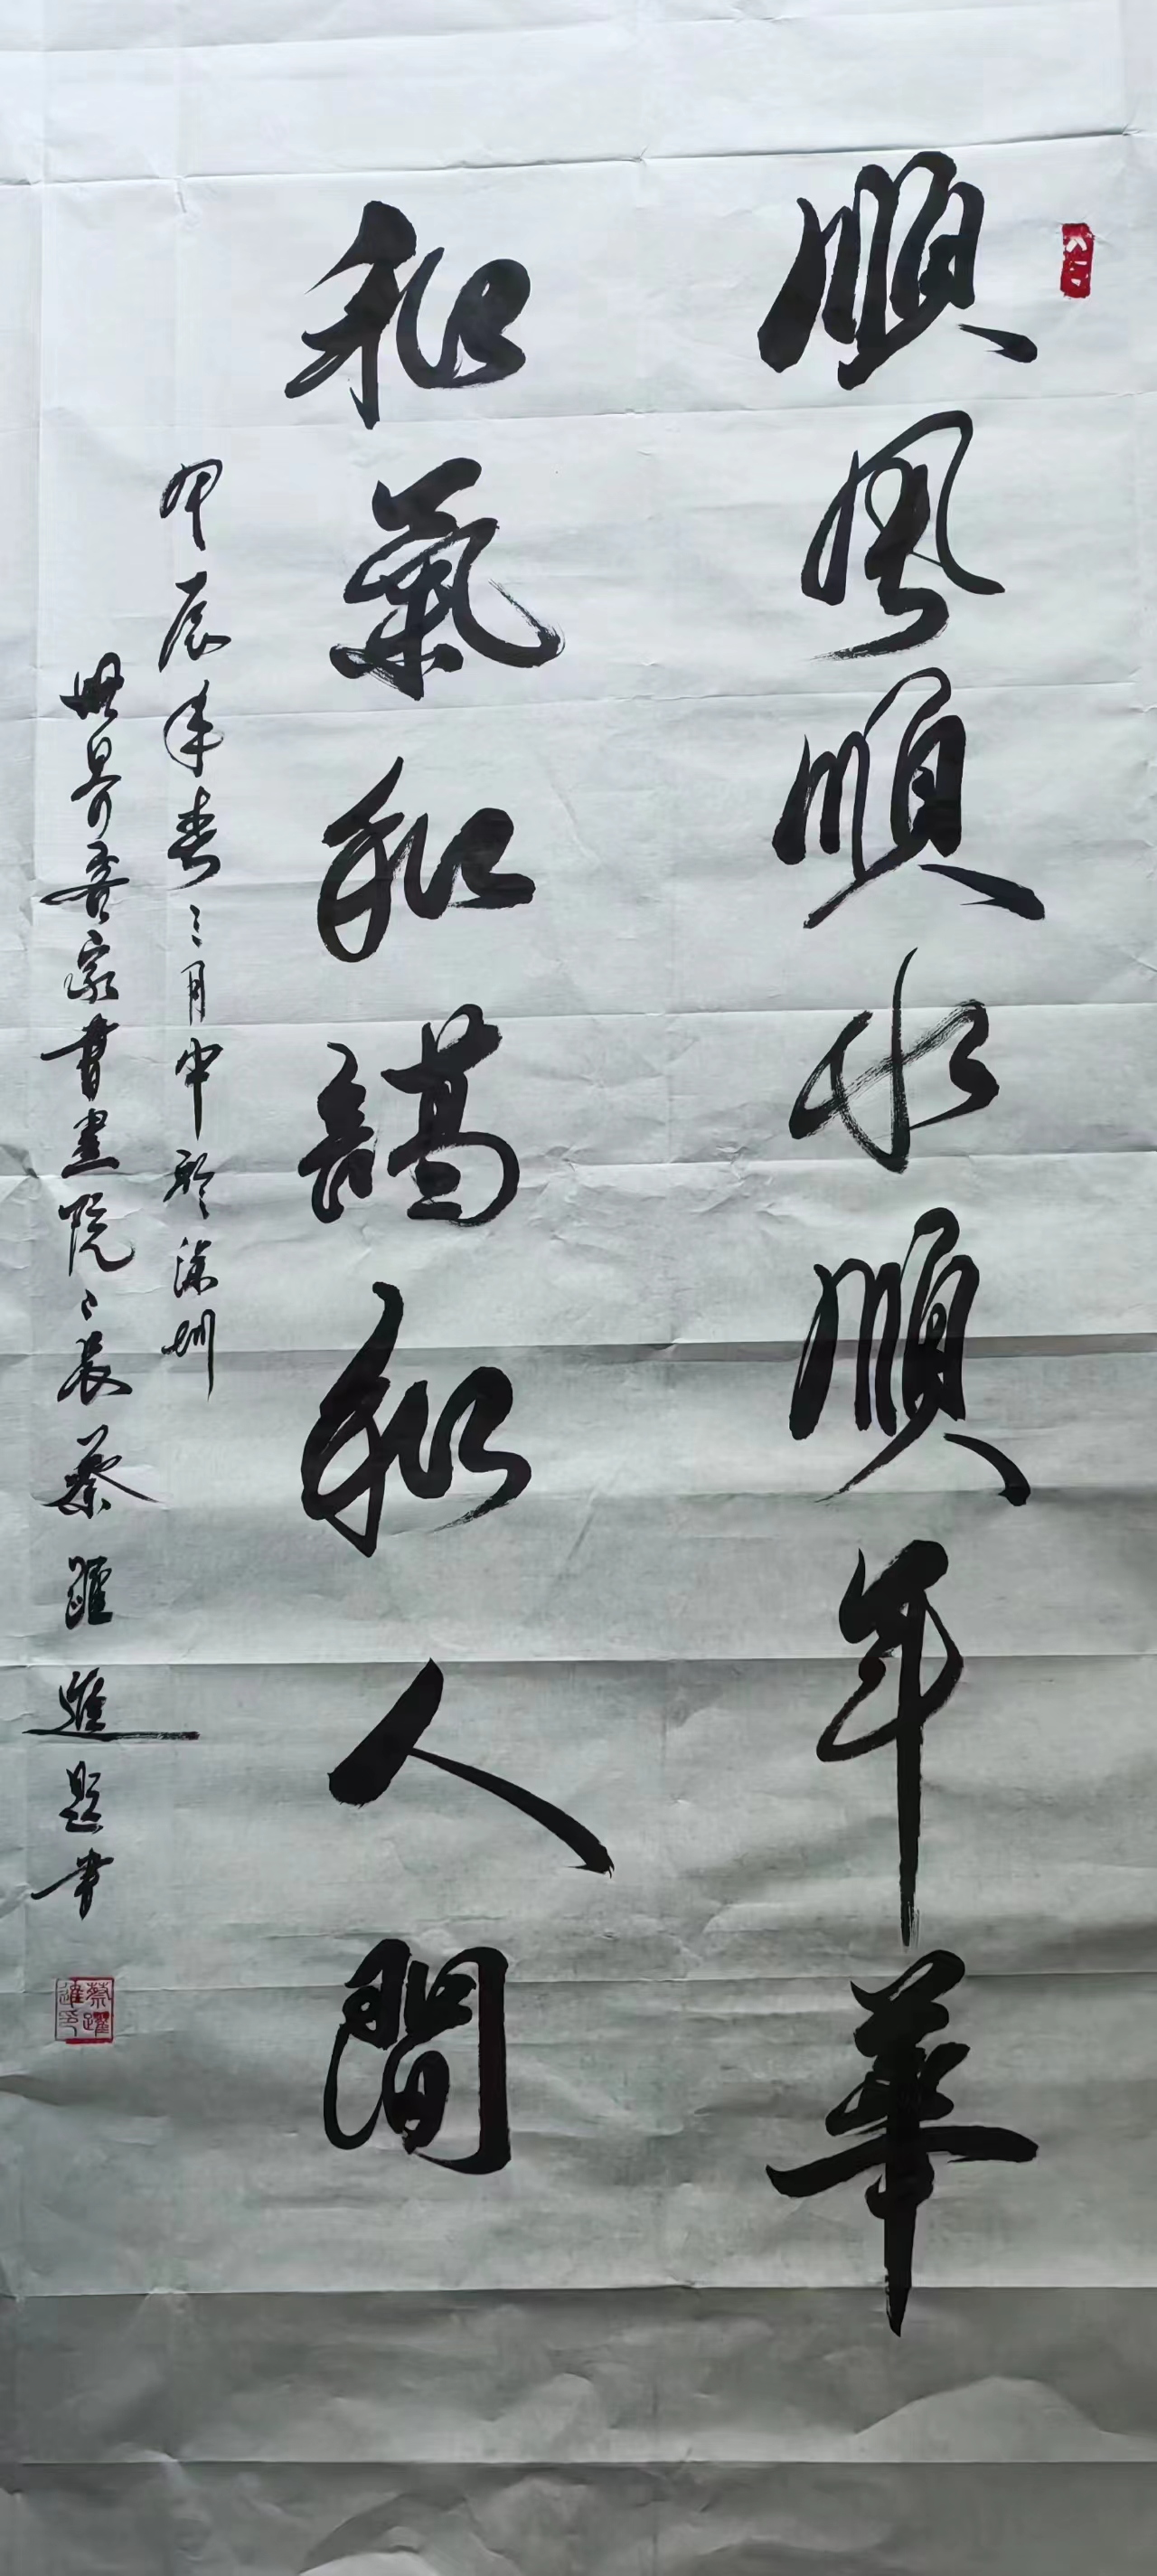 順風順水順年華
和氣和譪和人間
甲辰年春三月中於深圳
世界客家書畫院〻長蔡躍進題書
蔡躍進印